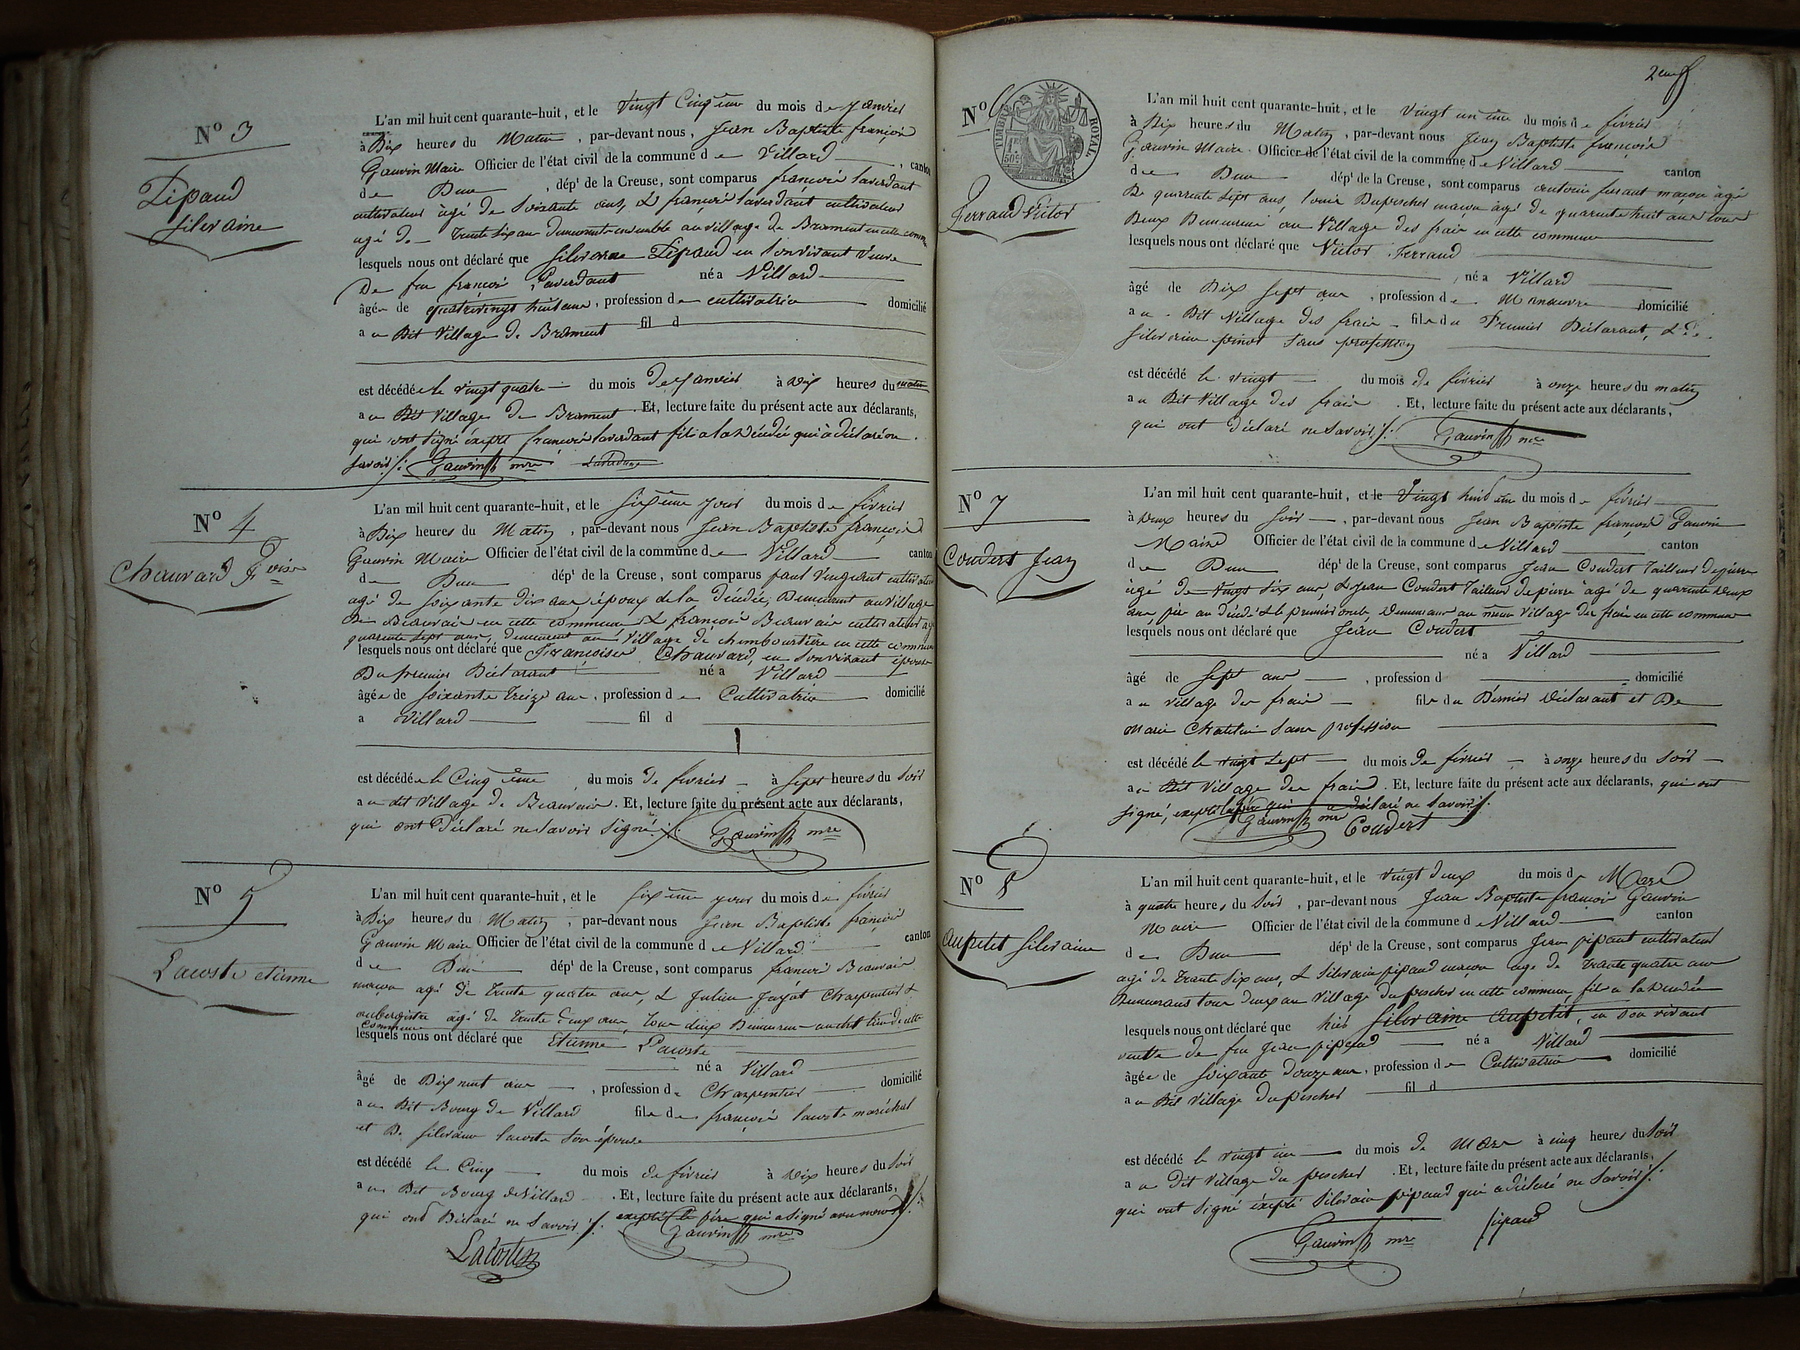 N° 3
Pipaud
silvaine
L'an mil huit cent quarante-huit, et le vingt cinq ème du mois de Janvier
à Dix heures du Matin, par-devant nous, Jean Baptiste françois
Gauvin Maire Officier de l'état civil de la commune de Villard, canton
de Dun, dépt de la Creuse, sont comparus françois laverdant
cultivateur âgé de soixante ans, & françois laverdant cultivateur
âgé de trente six ans demeurant ensemble au village de Brament en cette commune
lesquels nous ont déclaré que silvaine Pipaud en son vivant veuve
De feu françois Laverdant né a Villard
âgée de quatrevingt huit ans, profession de cultivatrice domicilié
au Dit Village de Brament fil d
est décédée le vingt quatre du mois de Janvier à dix heures du matin
au Dit Village de Brament. Et, lecture faite du présent acte aux déclarants,
qui ont signé éxepté françois laverdant fils a la décédée qui à déclaré ne
savoir /: Gauvin mre
N° 4
Chauvard Foise
L'an mil huit cent quarante-huit, et le sixième jour du mois de février
à Dix heures du Matin, par-devant nous Jean Baptiste françois
Gauvin Maire Officier de l'état civil de la commune de Villard canton
de Dun dépt de la Creuse, sont comparus paul cultivateur
agé de soixante dix ans époux de la décédée, Demeurant au village
de Beauvais en cette commune & françois Beauvais cultivateur agé
quarante sept ans, demeurant au Village de chambourtière en cette commune
lesquels nous ont déclaré que Françoise Chauvard, en son vivant épouse
Du premier Déclarant né a Villard
âgée de soixante treize ans, profession de Cultivatrice domicilié
a Villard fil d
est décédée le Cinq ème du mois de février à sept heures du soir
au dit Village de Beauvais. Et, lecture faite du présent acte aux déclarants,
qui ont Déclaré ne savoir signé /: Gauvin mre
N° 5
Lacoste etienne
L'an mil huit cent quarante-huit, et le sixième jour du mois de février
à Dix heures du Matin, par-devant nous Jean Baptiste françois
Gauvin Maire Officier de l'état civil de la commune de Villard canton
de Dun dépt de la Creuse, sont comparus françois Beauvais
maçon agé de trente quatre ans, & Julien Charpentier &
aubergiste agé de trente Deux ans, tous deux Demeurant audit lieu de cette
commune
lesquels nous ont déclaré que Etienne Lacoste
né a Villard
âgé de Dix neuf ans, profession de Charpentier domicilié
au Dit Bourg de Villard fils de françois lacoste maréchal
et De silvaine lacoste son épouse
est décédé le Cinq du mois de février à dix heures du soir
au Dit Bourg de Villard. Et, lecture faite du présent acte aux déclarants,
qui ont Déclaré ne savoir /: exepté le père qui a signé avec nous /:
Gauvin mre
Lacoste
2eme f
N° 6
TIMBRE ROYAL
1f 50c
Ferraud Victor
L'an mil huit cent quarante-huit, et le vingt un ème du mois de février
à Dix heures du Matin, par-devant nous Jean Baptiste françois
Gauvin Maire Officier de l'état civil de la commune de Villard canton
de Dun dépt de la Creuse, sont comparus antoine feraut maçon âgé
De quarante sept ans, louis Dupocher maçon agé de quarente huit ans tous
Deux Demeurent au Village des frais en cette commune
lesquels nous ont déclaré que Victor Ferraud
né a Villard
âgé de Dix sept ans, profession de Manœuvre domicilié
au Dit Village des frais fils du Premier Déclarant, & De
silvaine pinot sans profession
est décédé le vingt du mois de février à onze heures du matin
au Dit Village des frais. Et, lecture faite du présent acte aux déclarants,
qui ont déclaré ne savoir /: Gauvin mre
N° 7
Coudert Jean
L'an mil huit cent quarante-huit, et le Vingt huit ème du mois de février
à Deux heures du soir, par-devant nous Jean Baptiste françois Gauvin
Maire Officier de l'état civil de la commune de Villard canton
de Dun dépt de la Creuse, sont comparus Jean Coudert Tailleur de pierre
agé de vingt six ans, & Jean Coudert Tailleur de pierre âgé de quarente deux
ans, père au décédé & le premier oncle demeurans au même village des frais en cette commune
lesquels nous ont déclaré que Jean Coudert
né a Villard
âgé de sept ans, profession d domicilié
au village des frais fils du Dernier déclarant et De
marie Chatelin sans profession
est décédé le vingt sept du mois de février à onze heures du soir
au Dit Village des frais. Et, lecture faite du présent acte aux déclarants, qui ont
signé, exepté le père qui a déclaré ne savoir /:
Gauvin mre Coudert
N° 8
Aupetit silvaine
L'an mil huit cent quarante-huit, et le vingt deux du mois d Mars
à quatre heures du soir, par-devant nous Jean Baptiste françois Gauvin
Maire Officier de l'état civil de la commune de Villard canton
de Dun dépt de la Creuse, sont comparus Jean pipaud cultivateur
agé de Trante six ans, & silvain pipaud maçon agé de trante quatre ans
Demeurans tous deux au Village du pocher en cette commune fils a la décédée
lesquels nous ont déclaré que hier silvaine Aupetit, en son vivant
veuve de feu Jean pipaud né a Villard
âgée de soixante douze ans, profession de Cultivatrice domicilié
au Dit Village du pocher fil d
est décédé le vingt un du mois de Mars à cinq heures du soir
au dit Village du pocher. Et, lecture faite du présent acte aux déclarants,
qui ont signé éxepté silvain pipaud qui a déclaré ne savoir /:
Gauvin mre pipaud